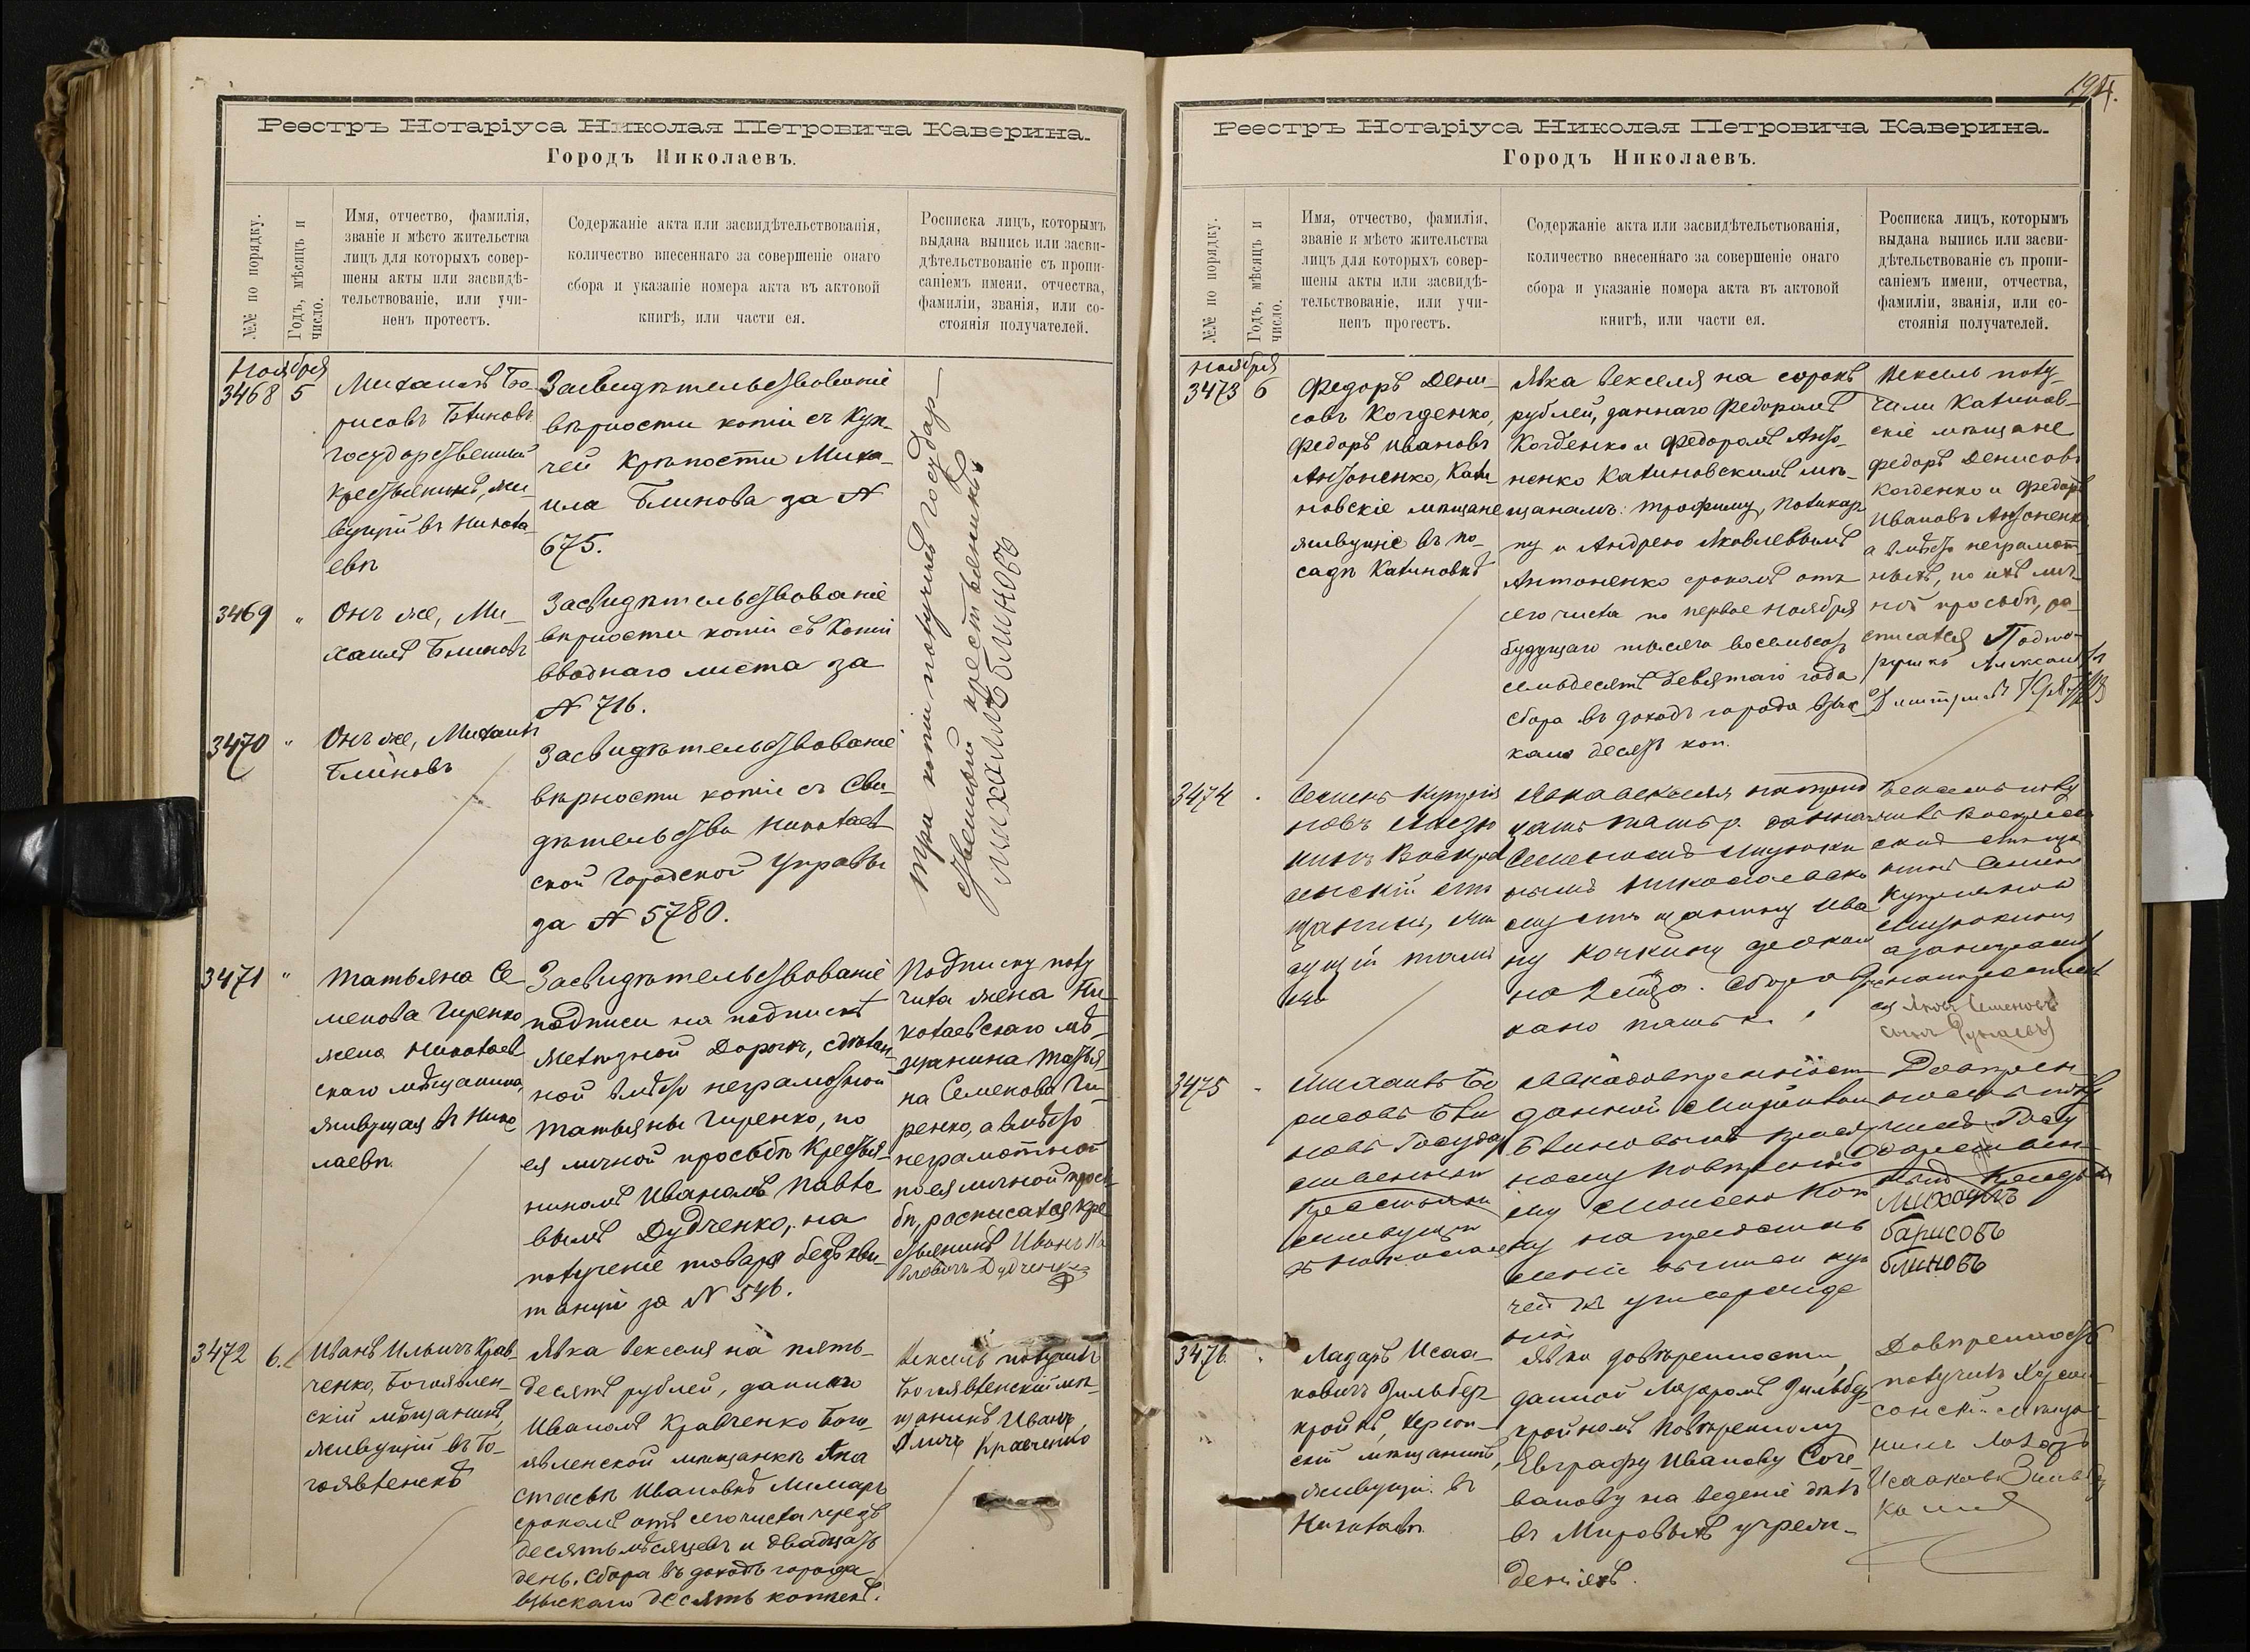 Реестръ Нотаріуса Николая Петровича Каверина.
Городъ Николаевъ.
№№ по порядку.
Годъ, мѣсяцъ и
число.
Имя, отчество, фамилія,
званіе и мѣсто жительства
лицъ для которыхъ совер-
шены акты или засвидѣ-
тельствованіе, или учи-
ненъ протестъ.
Содержаніе акта или засвидѣтельствованія,
количество внесеннаго за совершеніе онаго
сбора и указаніе номера акта въ актовой
книгѣ, или части ея.
Росписка лицъ, которымъ
выдана выпись или засви-
дѣтельствованіе съ пропи-
саніемъ имени, отчества,
фамиліи, званія, или со-
стоянія получателей.
Ноября
3468
5
Михаилъ Бо-
рисовъ Блиновъ
государственный
крестьянинъ, жи-
вущій въ Никола-
евѣ
Засвидѣтельствованіе
вѣрности копіи съ куп-
чей крѣпости Миха-
ила Блинова за №
675.
Три копіи получилъ государ-
ственный крестьянинъ
Михаилъ Блиновъ
3469
"
Онъ же, Ми-
хаилъ Блиновъ
Засвидѣтельствованіе
вѣрности копіи съ копіи
вводнаго листа за
№ 716.
3470
"
Онъ же, Михаилъ
Блиновъ
Засвидѣтельствованіе
вѣрности копіи съ Сви-
дѣтельства Николаев
ской Городской Управы
за № 5780.
3471
"
Татьяна Се-
менова Гиренко
жена Николаев
скаго мѣщанина,
живущая въ Нико
лаевѣ.
Засвидѣтельствованіе
подписи на подпискѣ
желѣзной дорогѣ, сдѣлан
ной вмѣсто неграмотной
Татьяны Гиренко, по
ея личной просьбѣ крестья-
ниномъ Иваномъ Павло
вымъ Дудченко, на
полученіе товара безъ кви-
танціи за № 546.
Подписку полу
чила жена Ни-
колаевскаго мѣ-
щанина Татья-
на Семенова Ги-
ренко, а вмѣсто
неграмотной
по ея личной прось-
бѣ, росписался кре
стьянинъ Иванъ Па
вловичъ Дудченко
3472
6.
Иванъ Ильичъ Крав-
ченко, Богоявлен-
скій мѣщанинъ,
живущій въ Бо-
гоявленскѣ
Явка векселя на пять-
десятъ рублей, даннаго
Иваномъ Кравченко Бого-
явленской мѣщанкѣ Ана
стасьѣ Ивановнѣ Лимарь
срокомъ отъ сего числа черезъ
десять мѣсяцевъ и двадцать
день. Сбора въ доходъ города
взыскано десять копѣекъ.
Вексель получилъ
Богоявленскій мѣ-
щанинъ Иванъ
Ильичъ Кравченко
194.
Реестръ Нотаріуса Николая Петровича Каверина.
Городъ Николаевъ.
№№ по порядку.
Годъ, мѣсяцъ и
число.
Имя, отчество, фамилія,
званіе и мѣсто жительства
лицъ для которыхъ совер-
шены акты или засвидѣ-
тельствованіе, или учи-
ненъ протестъ.
Содержаніе акта или засвидѣтельствованія,
количество внесеннаго за совершеніе онаго
сбора и указаніе номера акта въ актовой
книгѣ, или части ея.
Росписка лицъ, которымъ
выдана выпись или засви-
дѣтельствованіе съ пропи-
саніемъ имени, отчества,
фамиліи, званія, или со-
стоянія получателей.
Ноября
3473
6
Федоръ Дени-
совъ Когденко,
Федоръ Ивановъ
Антоненко, Кали
новскіе мѣщане
живущіе въ по-
садѣ Калиновкѣ
Явка векселя на сорокъ
рублей, даннаго Федоромъ
Когденко и Федоромъ Анто-
ненко Калиновскимъ мѣ-
щанамъ: Трофиму, Поликар
пу и Андрею Яковлевымъ
Антоненко срокомъ отъ
сего числа по первое Ноября
будущаго тысяча восемьсотъ
семьдесятъ девятаго года
сбора въ доходъ города взыс-
кано десять коп.
Вексель полу-
чили Калинов-
скіе мѣщане
Федоръ Денисовъ
Когденко и Федоръ
Ивановъ Антоненко
а вмѣсто неграмот-
ныхъ, по ихъ лич-
ной просьбѣ, рос
списался
3474
Явка векселя
Вексель полу
Кочкину
на 2 мѣс.
3475
Михаилъ Бо
рисовъ Бли
новъ Государ
ственный
крестьянинъ
живущій
въ Николаевѣ
Явка довѣренности
данной Михаиломъ
Блиновымъ
Довѣрен
ность полу
чилъ Госу
дарствен
ный
Михаилъ
барисовъ
блиновъ
3476
Лазарь Исаа-
ковичъ Зильбер
кройнъ, Херсон-
скій мѣщанинъ,
живущій въ
Николаевѣ.
Явка довѣренности,
данной Лазаромъ Зильбер
кройномъ повѣренному
Евграфу Иванову Соче-
ванову на веденіе дѣлъ
въ Мировыхъ учреж-
деніяхъ.
Довѣренность
получилъ Хер-
сонскій мѣща-
нинъ Лазарь
Исааковъ